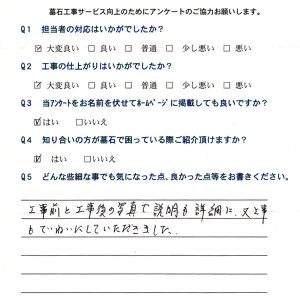 墓石工事サービス向上のためにアンケートのご協力お願いします。
Q1 担当者の対応はいかがでしたか？
☑大変良い □良い □普通 □少し悪い □悪い
Q2 工事の仕上がりはいかがでしたか？
☑大変良い □良い □普通 □少し悪い □悪い
Q3 当アンケートをお名前を伏せてホームページに掲載しても良いですか？
☑はい □いいえ
Q4 知り合いの方が墓石で困っている際ご紹介頂けますか？
☑はい □いいえ
Q5 どんな些細な事でも気になった点、良かった点等をお書きください。
工事前と工事後の写真で説明も詳細に、又工事
もていねいにしていただきました。